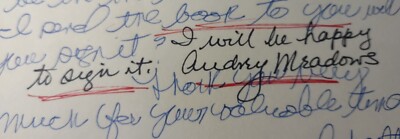 I send the book to you will
you sign it? I will be happy
to sign it. Audrey Meadows
Thank you very
much for your valuable time